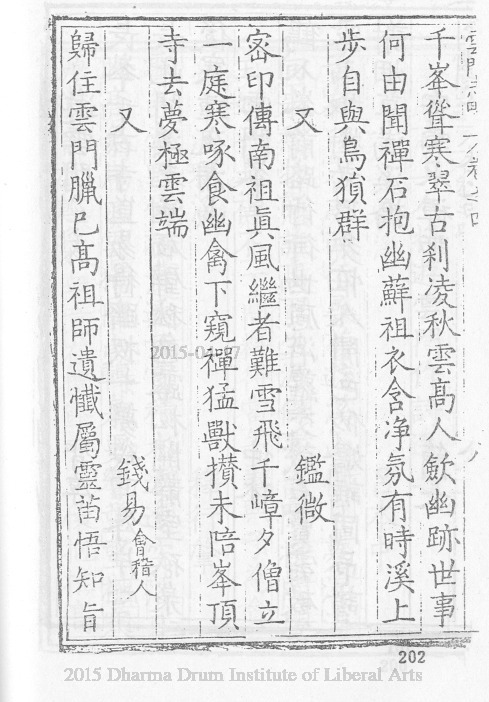 雲門志略　卷之四
千峯聳寒翠古刹凌秋雲髙人歛幽跡世事
何由聞禪石抱幽蘚祖衣含浄氛有時溪上
步自與鳥𧲂群
又　鑑微
宻印傳南祖眞風繼者難雪飛千嶂夕僧立
一庭寒啄食幽禽下窺禪猛獸攅未陪峯頂
寺去夢極雲端
又　錢易會稽人
歸住雲門臘巳髙祖師遺懺屬靈苗悟知旨
2015-04-27
202
2015 Dharma Drum Institute of Liberal Arts